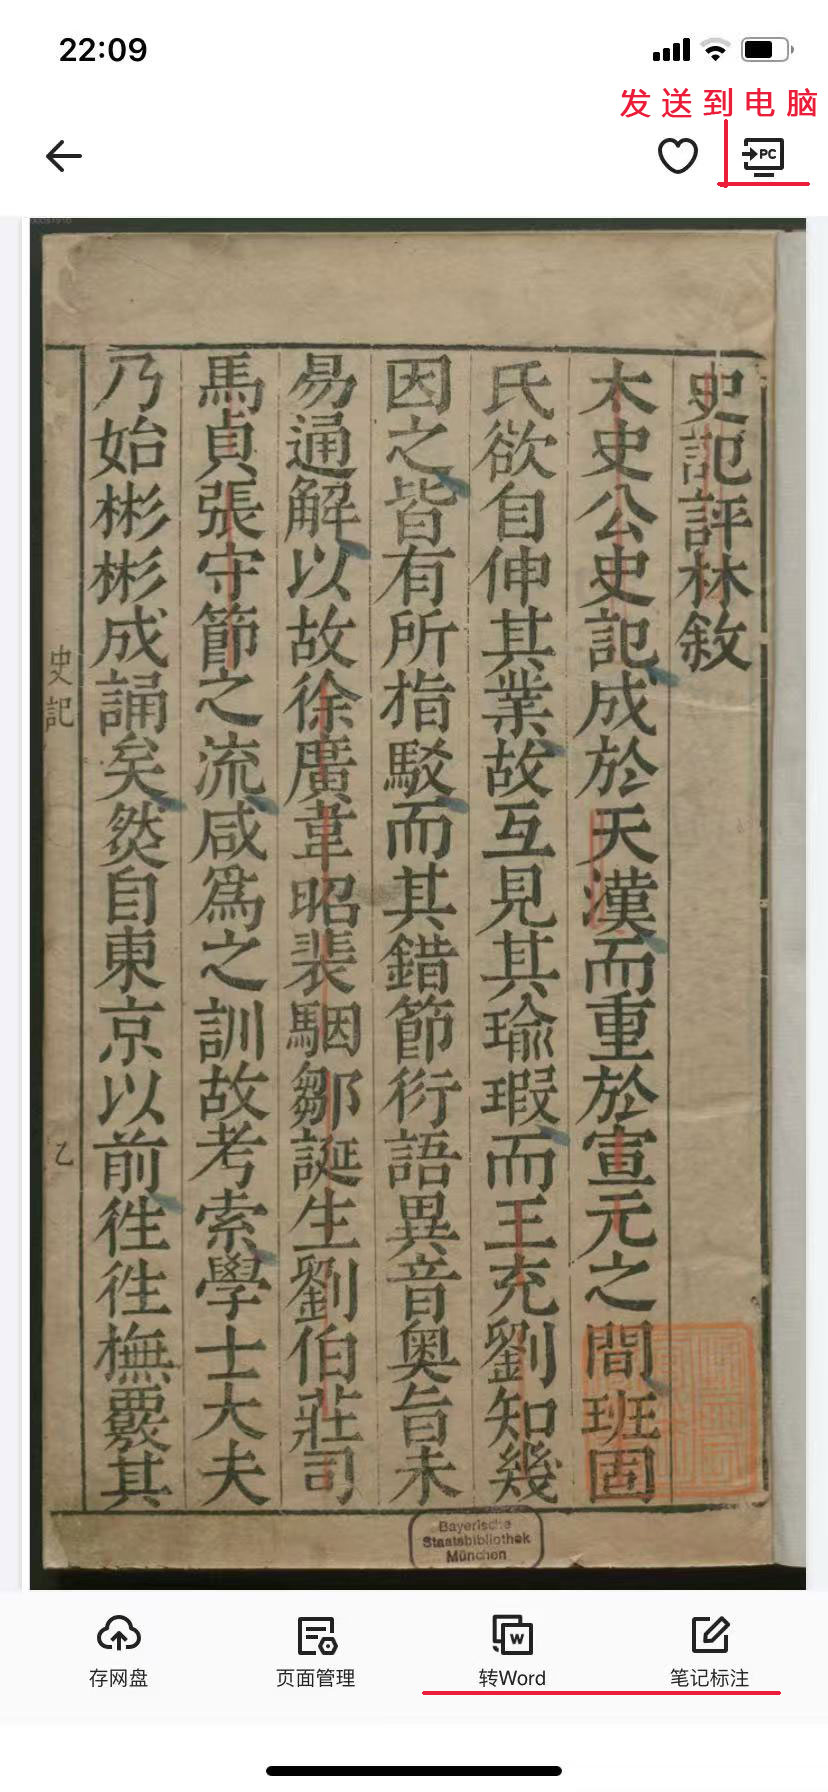 22:09
发送到电脑
PC
史記評林敘
太史公史記成於天漢而重於宣元之間班固
氏欲自伸其業故互見其瑜瑕而王充劉知幾
因之皆有所指駁而其錯節衍語異音奧旨未
易通解以故徐廣韋昭裴駰鄒誕生劉伯莊司
馬貞張守節之流咸爲之訓故考索學士大夫
乃始彬彬成誦矣然自東京以前徃徃橅覈其
史記
乙
Bayerische
Staatsbibliothek
München
存网盘
页面管理
转Word
笔记标注